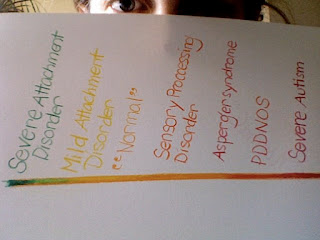 Severe Attachment
Disorder
Mild Attachment
Disorder
"Normal"
Sensory Processing
Disorder
Asperger syndrome
PDDNOS
Severe Autism